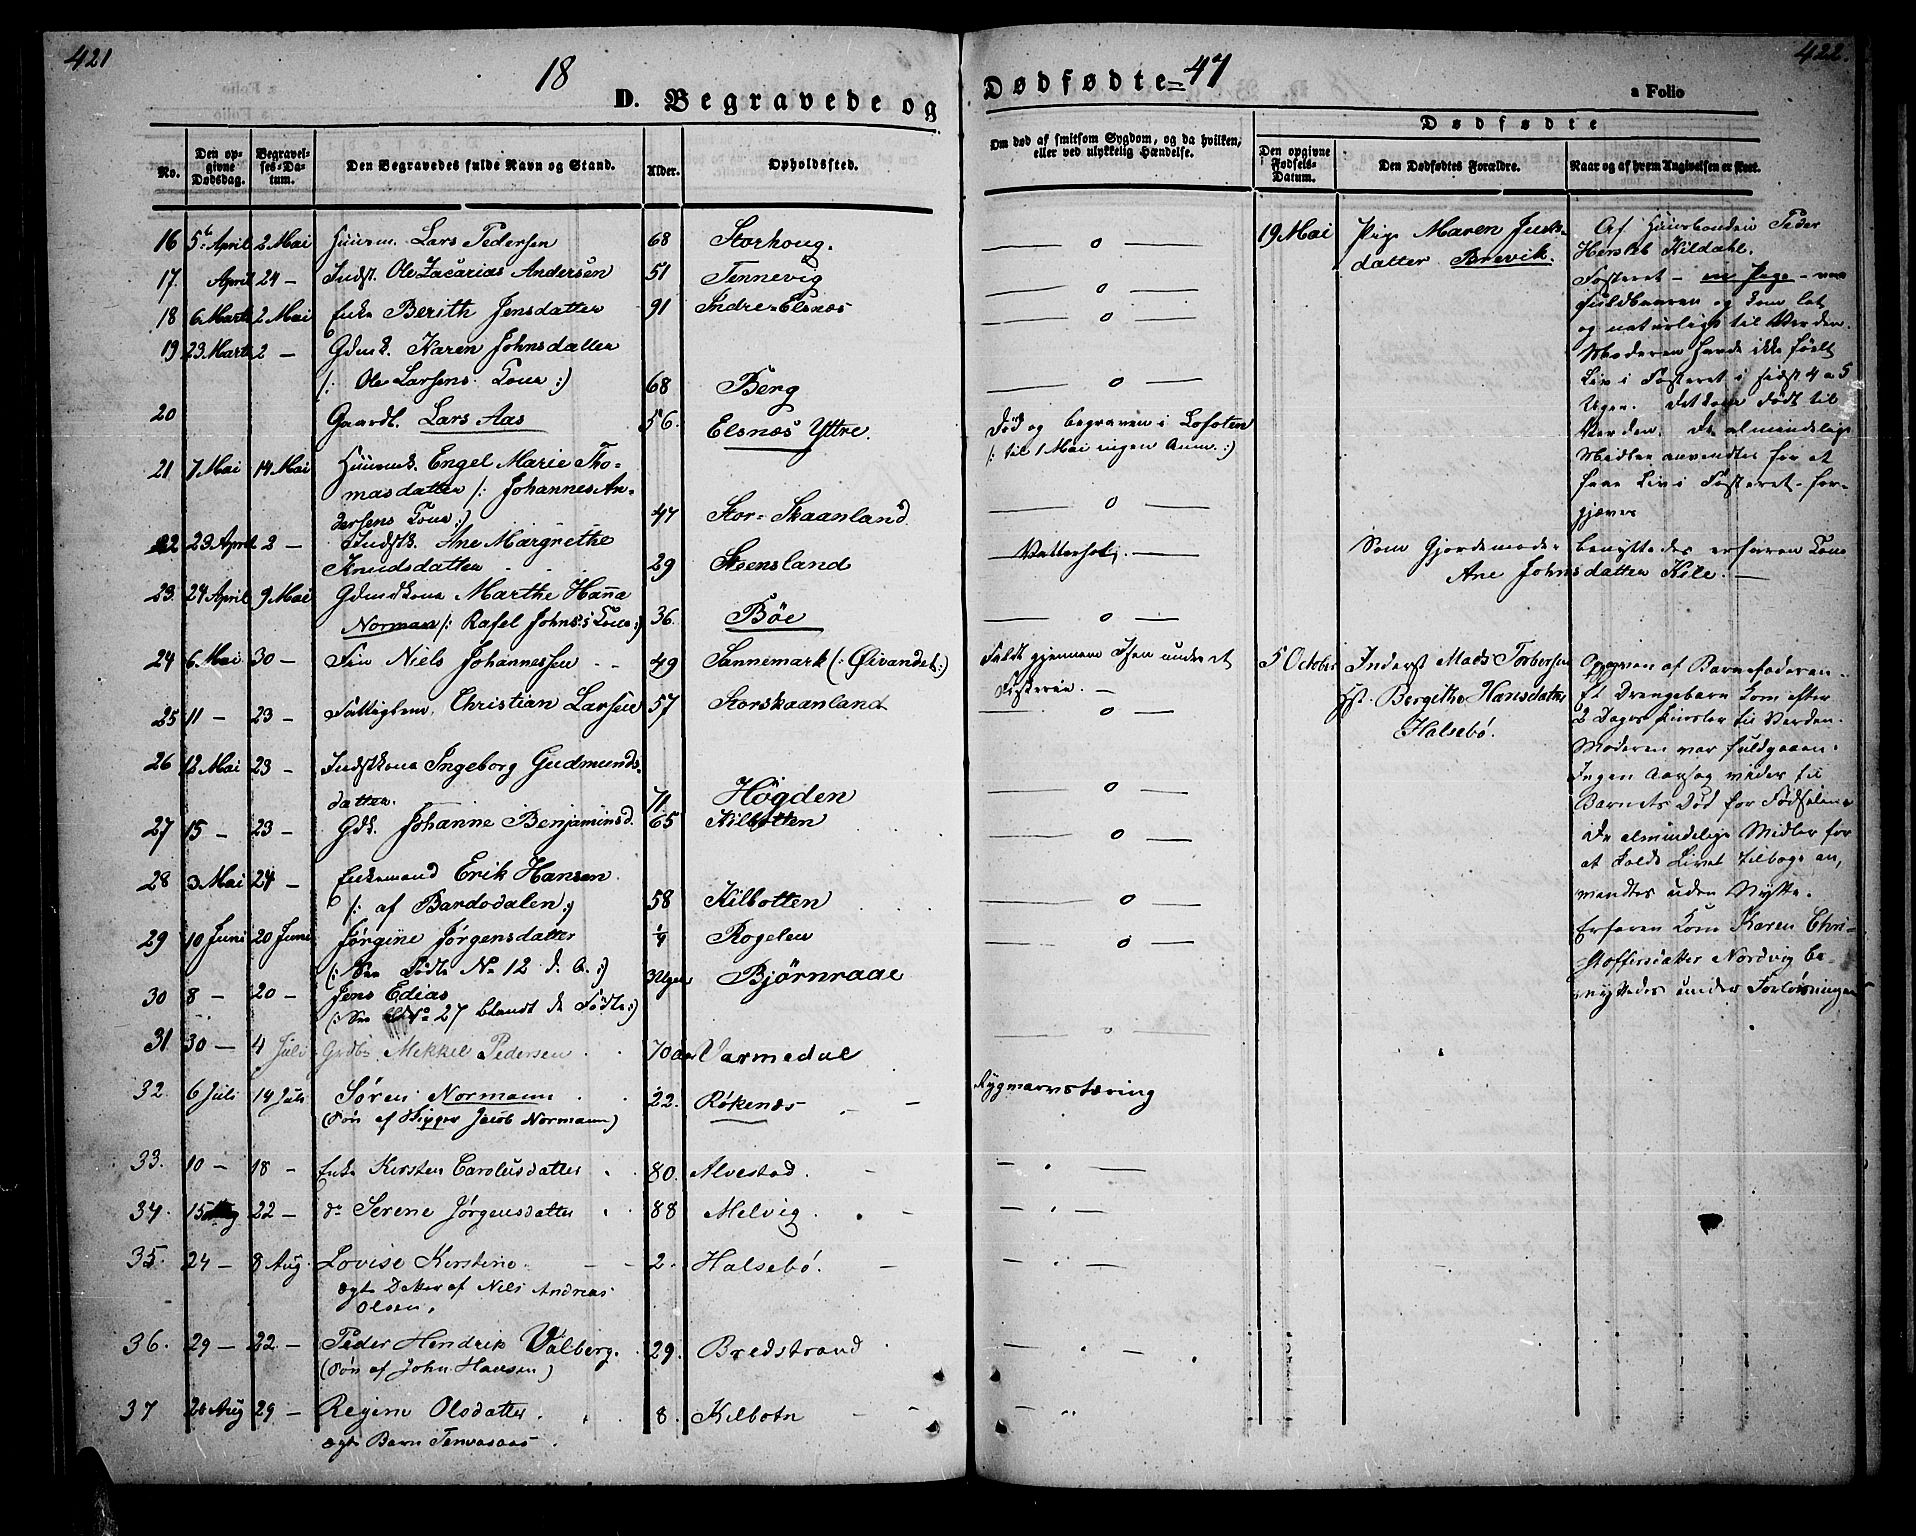 421
18
47
422.
D. Begravede og Dødfødte
a Folio
No.
Den opgivne Dødsdag.
Begravelses-Datum.
Den Begravedes fulde Navn og Stand.
Alder.
Opholdssted.
Om død af smitsom Sygdom, og da hvilken, eller ved ulykkelig Hændelse.
Dødfødte
Den opgivne Fødsels-Datum.
Den Dødfødtes Forældre.
Naar og af hvem Angivelsen er skeet.
16 5t April 2 Mai Huusm. Lars Pedersen 68 Storhoug. — o —
17. April 24 — Indst. Ole Zacarias Andersen 51 Tennevig — o —
18 6 Marts 2 Mai Enke Berith Jensdatter 91 Indre-Elsnæs — o —
19 23 Marts 2 — Gdmk. Karen Johnsdatter
(: Ole Larsens Kone :) 68 Berg — o —
20 Gaardb. Lars Aas 56. Elsnæs Yttre. Død og begraven i Lofoten
(: til 1 Mai ingen Anm. :)
21 7 Mai 14 Mai Huusmk. Engel Marie Tho-
masdatter (: Johannes An-
dersens Kone :) 47 Stor-Skaanland — o —
22 23 April 2 — Indstk. Ane Margrethe
Knudsdatter 29 Steensland Vattersot. —
23. 24 April 9 Mai Gdmdkone Marthe Hanna
Norman (: Rafel Johns:s Kone :) 36. Bøe — o —
24 6 Mai 30 — Fin Niels Johannessen 49 Sannemark (: Øivandet :) Faldt gjennem Isen under et
Fiskerie. —
25 11 — 23 — Fattiglem. Christian Larsen 57 Storskaanland — o —
26 12 Mai 23 — Indstkone Ingeborg Gudmunds-
datter. 71 Høgden — o —
27 15 — 23 — Gdk. Johanne Benjaminsd. 65 Kilbotten — o —
28 3 Mai 24 — Enkemand Erik Hansen
(: af Bardodalen :) 58 Kilbotten — o —
29 10 Juni 20 Juni Jørgine Jørgensdatter 1/4 Rogelen — o —
(: See Fødte No 12 d. A. :)
30 8 — 20 — Jens Edias 3 Uger Bjørnraae
(: See No 27 blandt de Fødte :)
31. 30 — 4 Juli Grdbr Mekkel Pedersen 70 Aar Varmedal — o —
32. 6 Juli 14 Juli Søren Normann 22. Røkenæs Rygmarvstæring
(Søn af Skipper Jacob Normann)
33. 10 — 18 — Enke Kirsten Carolusdatter 80. Alvestad.
34. 15 22 — do Serene Jørgensdatter 88 Melvig.
35. 24 — 8 Aug. Lovise Kirstine. 2. Halsebø.
ægte Datter af Niels Andreas
Olsen.
36. 29 — 22 — Peder Hendrik Valberg. 29. Bredstrand
(Søn af John Hansen)
37 Aug 29 — Regine Olsdatter. 8. Kilbotn
ægte Barn
19 Mai Pige Maren
datter Brevik.
Af Huusbonden Peder
Kildahl.
Fosteret — en Pige — var
Fuldbaaren og kom let
og naturligt til Verden.
Moderen havde ikke følt
Liv i Fosteret i sidst 4 a 5
Uger. Det kom dødt til
Verden. De almindelige
Midler anvendtes for at
faae Liv i Fosteret for-
gjæves
Som Gjordemoder benyttedes erfaren Kone
Ane Johnsdatter Kile. —
5 October Inderst Mads Torbersen
Hst. Bergithe Hansdatter
Halsebø.
Opgiven af Barnefaderen.
Et Drengebarn kom efter
2 Dages til Verden.
Moderen var fuldgaaen.
Ingen Aarsag vides til
Barnets Død før Fødselen.
De almindelige Midler for
at kalde Livet tilbage an-
vendtes uden Nytte.
Erfaren Kone Karen Chri-
stoffersdatter Nordvig be-
nyttedes under Forløsningen